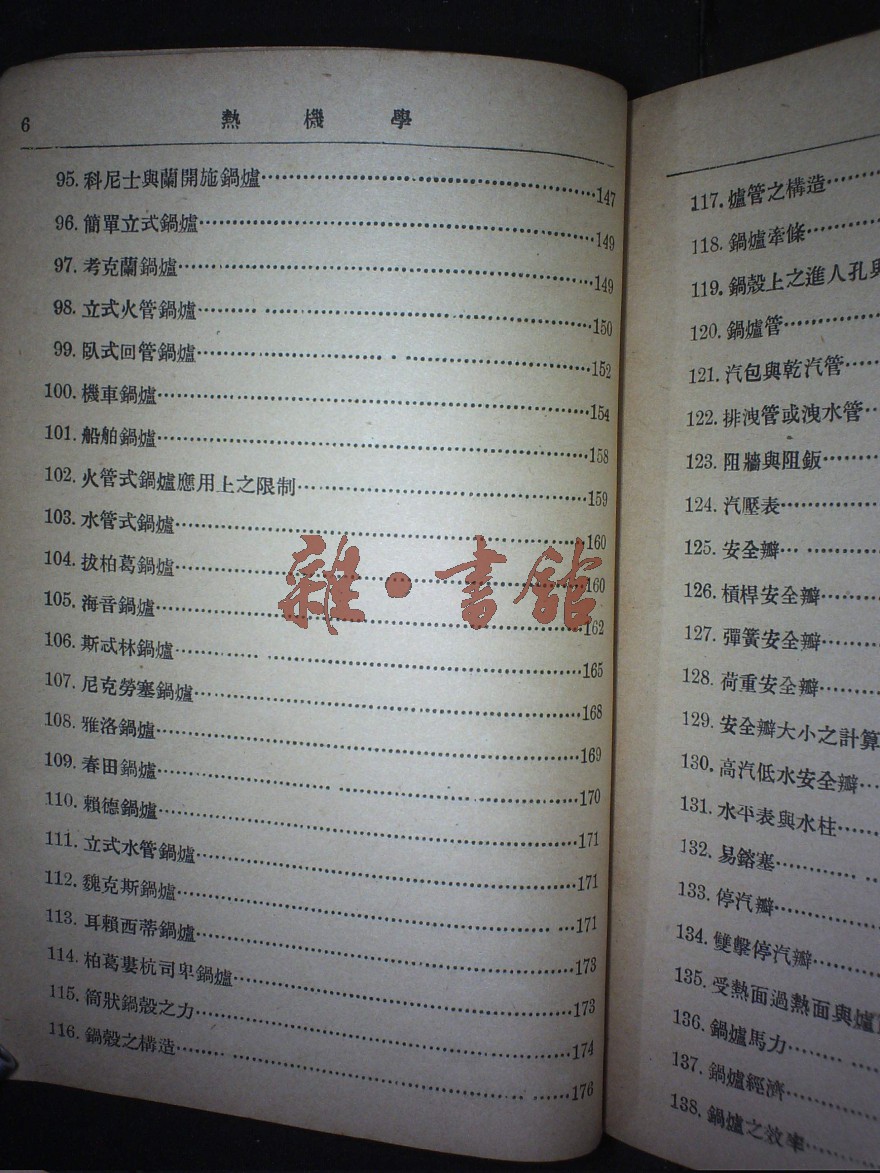 6
熱機學
95. 科尼士與蘭開施鍋爐 147
96. 簡單立式鍋爐 149
97. 考克蘭鍋爐 149
98. 立式火管鍋爐 150
99. 臥式回管鍋爐 152
100. 機車鍋爐 154
101. 船舶鍋爐 158
102. 火管式鍋爐應用上之限制 159
103. 水管式鍋爐 160
104. 拔柏葛鍋爐 160
105. 海音鍋爐 162
106. 斯忒林鍋爐 165
107. 尼克勞塞鍋爐 168
108. 雅洛鍋爐 169
109. 春田鍋爐 170
110. 賴德鍋爐 171
111. 立式水管鍋爐 171
112. 魏克斯鍋爐 171
113. 耳賴西蒂鍋爐 173
114. 柏葛婁杭司卑鍋爐 173
115. 筒狀鍋殼之力 174
116. 鍋殼之構造 176
雜·書館
117. 爐管之構造
118. 鍋爐牽條
119. 鍋殼上之進人孔與
120. 鍋爐管
121. 汽包與乾汽管
122. 排洩管或洩水管
123. 阻牆與阻鈑
124. 汽壓表
125. 安全瓣
126. 槓桿安全瓣
127. 彈簧安全瓣
128. 荷重安全瓣
129. 安全瓣大小之計算
130. 高汽低水安全瓣
131. 水平表與水柱
132. 易鎔塞
133. 停汽瓣
134. 雙擊停汽瓣
135. 受熱面過熱面與爐
136. 鍋爐馬力
137. 鍋爐經濟
138. 鍋爐之效率